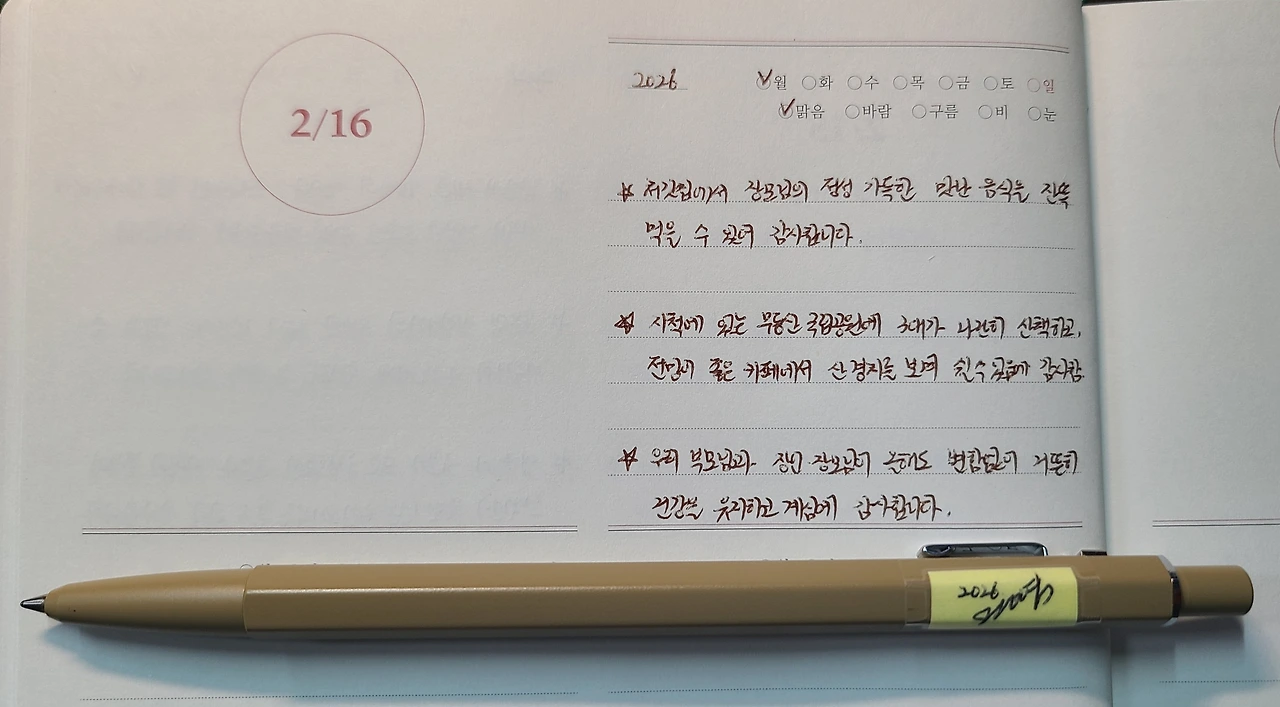 2/16
2026 월 화 수 목 금 토 일
맑음 바람 구름 비 눈
☆ 처갓집에서 장모님의 정성 가득한 맛난 음식을 잔뜩
먹을 수 있어 감사합니다.
☆ 지척에 있는 무등산 국립공원에 3대가 나란히 산책하고,
전망이 좋은 카페에서 산 경치를 보며 쉴 수 있음에 감사함.
☆ 우리 부모님과 장인 장모님이 올해도 변함없이 거뜬히
건강을 유지하고 계심에 감사합니다.
2026